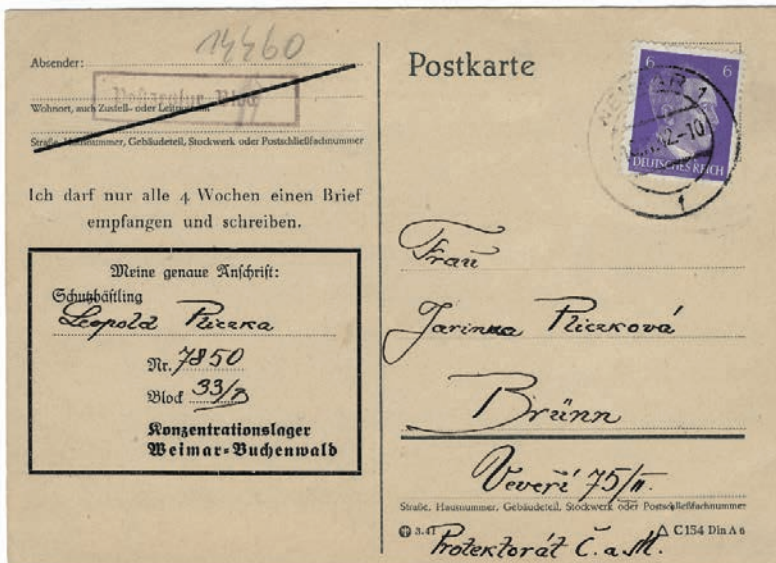 14460
Absender:
Postzensur Block
Wohnort, auch Zustell- oder Leitpostamt
Straße, Hausnummer, Gebäudeteil, Stockwerk oder Postschließfachnummer
Ich darf nur alle 4 Wochen einen Brief
empfangen und schreiben.
Meine genaue Anschrift:
Schutzhäftling
Leopold
Nr. 7850
Block 33/
Konzentrationslager
Weimar-Buchenwald
Postkarte
6 6
DEUTSCHES REICH
WEIMAR 1
42-10
f
Frau
Jarinka
Brünn
Veveří 75/II.
Straße, Hausnummer, Gebäudeteil, Stockwerk oder Postschließfachnummer
3.41
C154 Din A 6
Protektorát Č. a. M.